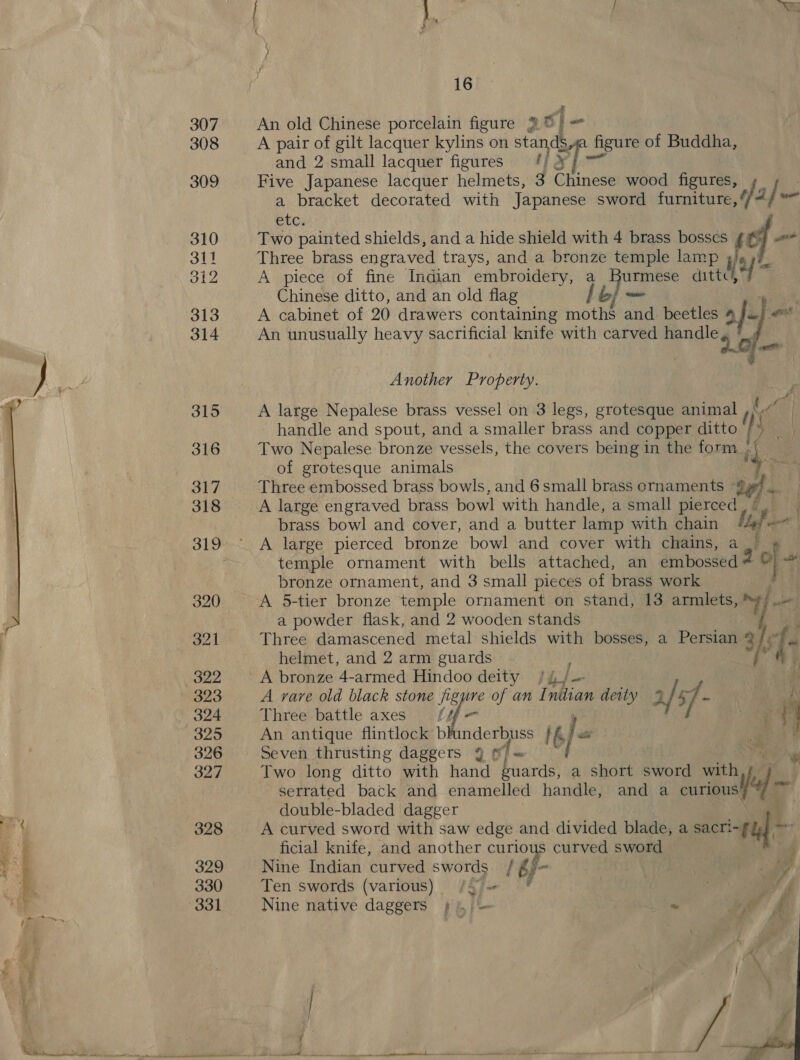 16
307 An old Chinese porcelain figure
308 A pair of gilt lacquer kylins on stands, a figure of Buddha,
and 2 small lacquer figures
309 Five Japanese lacquer helmets, 3 Chinese wood figures,
a bracket decorated with Japanese sword furniture,
etc.
310 Two painted shields, and a hide shield with 4 brass bosses
311 Three brass engraved trays, and a bronze temple lamp
312 A piece of fine Indian embroidery, a Burmese ditto,
Chinese ditto, and an old flag
313 A cabinet of 20 drawers containing moths and beetles
314 An unusually heavy sacrificial knife with carved handle
Another Property.
315 A large Nepalese brass vessel on 3 legs, grotesque animal
handle and spout, and a smaller brass and copper ditto
316 Two Nepalese bronze vessels, the covers being in the form
of grotesque animals
317 Three embossed brass bowls, and 6 small brass ornaments
318 A large engraved brass bowl with handle, a small pierced
brass bowl and cover, and a butter lamp with chain
319 A large pierced bronze bowl and cover with chains, a
temple ornament with bells attached, an embossed
bronze ornament, and 3 small pieces of brass work
320 A 5-tier bronze temple ornament on stand, 13 armlets,
a powder flask, and 2 wooden stands
321 Three damascened metal shields with bosses, a Persian
helmet, and 2 arm guards
322 A bronze 4-armed Hindoo deity
323 A rare old black stone figure of an Indian deity
324 Three battle axes
325 An antique flintlock blunderbuss
326 Seven thrusting daggers
327 Two long ditto with hand guards, a short sword with
serrated back and enamelled handle, and a curious
double-bladed dagger
328 A curved sword with saw edge and divided blade, a sacri-
ficial knife, and another curious curved sword
329 Nine Indian curved swords
330 Ten swords (various)
331 Nine native daggers